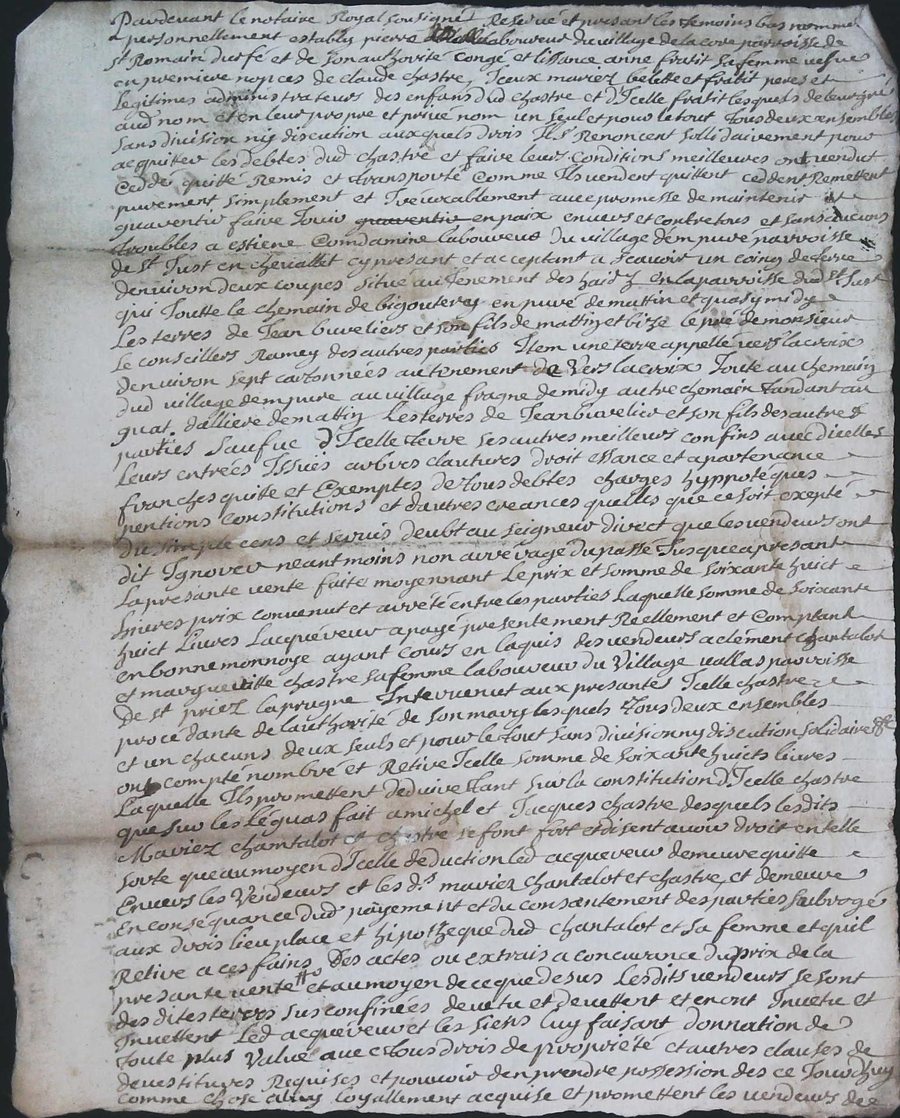 Pardevant le notaire Royal sousigné Reservé et presant les temoins bas nommes
personnellement estably pierre laboureur du village de la core parroisse de
st Romain durfé et de son authorité congé et lissance anne fratit sa femme vefve
en premiere nopces de claude chastre, Iceux mariez belotte et fratit peres et
legitimes administrateurs des enfans dud chastre et dIcelle fratit lesquels de leur gré
aud nom et en leur propre et privé nom un seul et pour le tout tous deux ensembles
sans division ny discution auxquels drois Ils Renoncent sollidairement pour
acquitter les debtes dud chastre et faire leurs conditions meilleures ont vendut
Ceddé quitté Remis et transporté Comme Ils vendent quittent ceddent Remettent
purement simplement et Irévocablement avec promesse de maintenir et
guarentir faire Jouir en paix envers et contre tous et sans aucuns
troubles a estiene Comdamine laboureur du village dempure parroisse
de st Just en chevallet cy presant et acceptant a scavoir un coing de terre
denviron deux coupes situé au tenement des haidz en la parroisse dud st Just
qui Joutte le chemain de bigouterey en puré de mattin et quasy midy
Les terres de Jean buveliers et son fils de mattin et bize le pré de monsieur
Le conseillers Ramey des autres parties Item une terre appellé vers la croix
denviron sept cartonnées au tenement de Vers la croix Joute au chemain
dud village dempure au village fragne de midy autre chemain tandant au
guat dalliere de mattin Les terres de Jean buvelier et son fils des autres
parties Saufve dIcelle terre ses autres meilleurs confins avec dicelles
Leurs entrées Issües arbres clautures droit essance et apartenance
franches quitte et Exemptes de tous debtes charges hyppoteques
pentions constitutions et dautres creances quelles que ce soit exepté
du simple cens et servis deubt au seigneur direct que les vendeurs ont
dit Ignorer neantmoins non arrerage du passé Jusque a presant
La presante vente faite moyennant le prix et somme de soixante huict
Livres prix convenut et arrété entre les parties Laquelle somme de soixante
huict Livres Lacquéreur a payé presentement Réellement et Comptant
en bonne monnoye ayant cours en laquis des vendeurs a clément chantalot
et margueritte chastre sa femme laboureur du Village vallas parroisse
De st priez laprugne Intervenut aux presantes Icelle chastre
procedante de lauthorité de son mary lesquels tous deux ensembles
et un chacuns deux seuls et pour le tout sans division ny discution solidaire
ont compté nombré et Retiré Icelle somme de soixante huict livres
Laquelle Ils promettent deduire tant sur la constitution dIcelle chastre
que sur les leguas fait a michel et Jacques chastre desquels lesdits
Mariez chantalot et chastre se font fort et disent avoir droit en telle
sorte que au moyen dIcelle deduction led acquereur demeure quitte
Envers les Vendeurs et les ds mariez Chantalot et chastre, et demeure
En conséquance dud payement et du consantement des parties subrogé
aux drois lieu place et hipotheque dud chantalot et sa femme et quil
Retire a ces fains Des actes ou extrais a concurance du prix de la
presante vente et au moyen de ce que desus Lesdits vendeurs se sont
des dites terres sus confinées devetu et devettent et en ont Invetu et
Invettent Led acquereur et les siens luy faisant donnation de
toute plus Value avec tous drois de propriété et autres clauses de
devestitures Requises et pouvoir den prendre possession des ce Jourdhuy
comme chose a luy loyallement acquise et promettent les vendeurs de